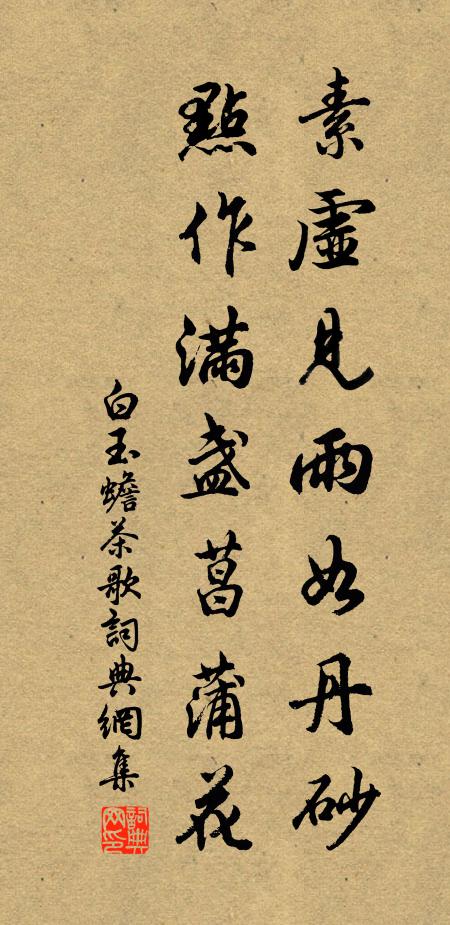 素虛見雨如丹砂
點作滿盞菖蒲花
白玉蟾茶歌詞典網集
詞典網印